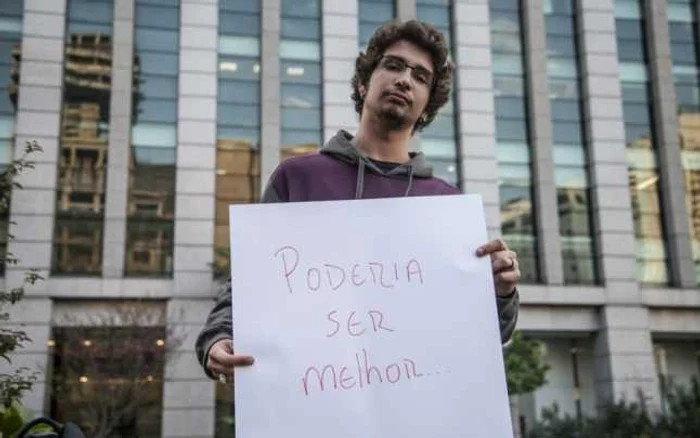 PODERIA
SER
MELHOR...